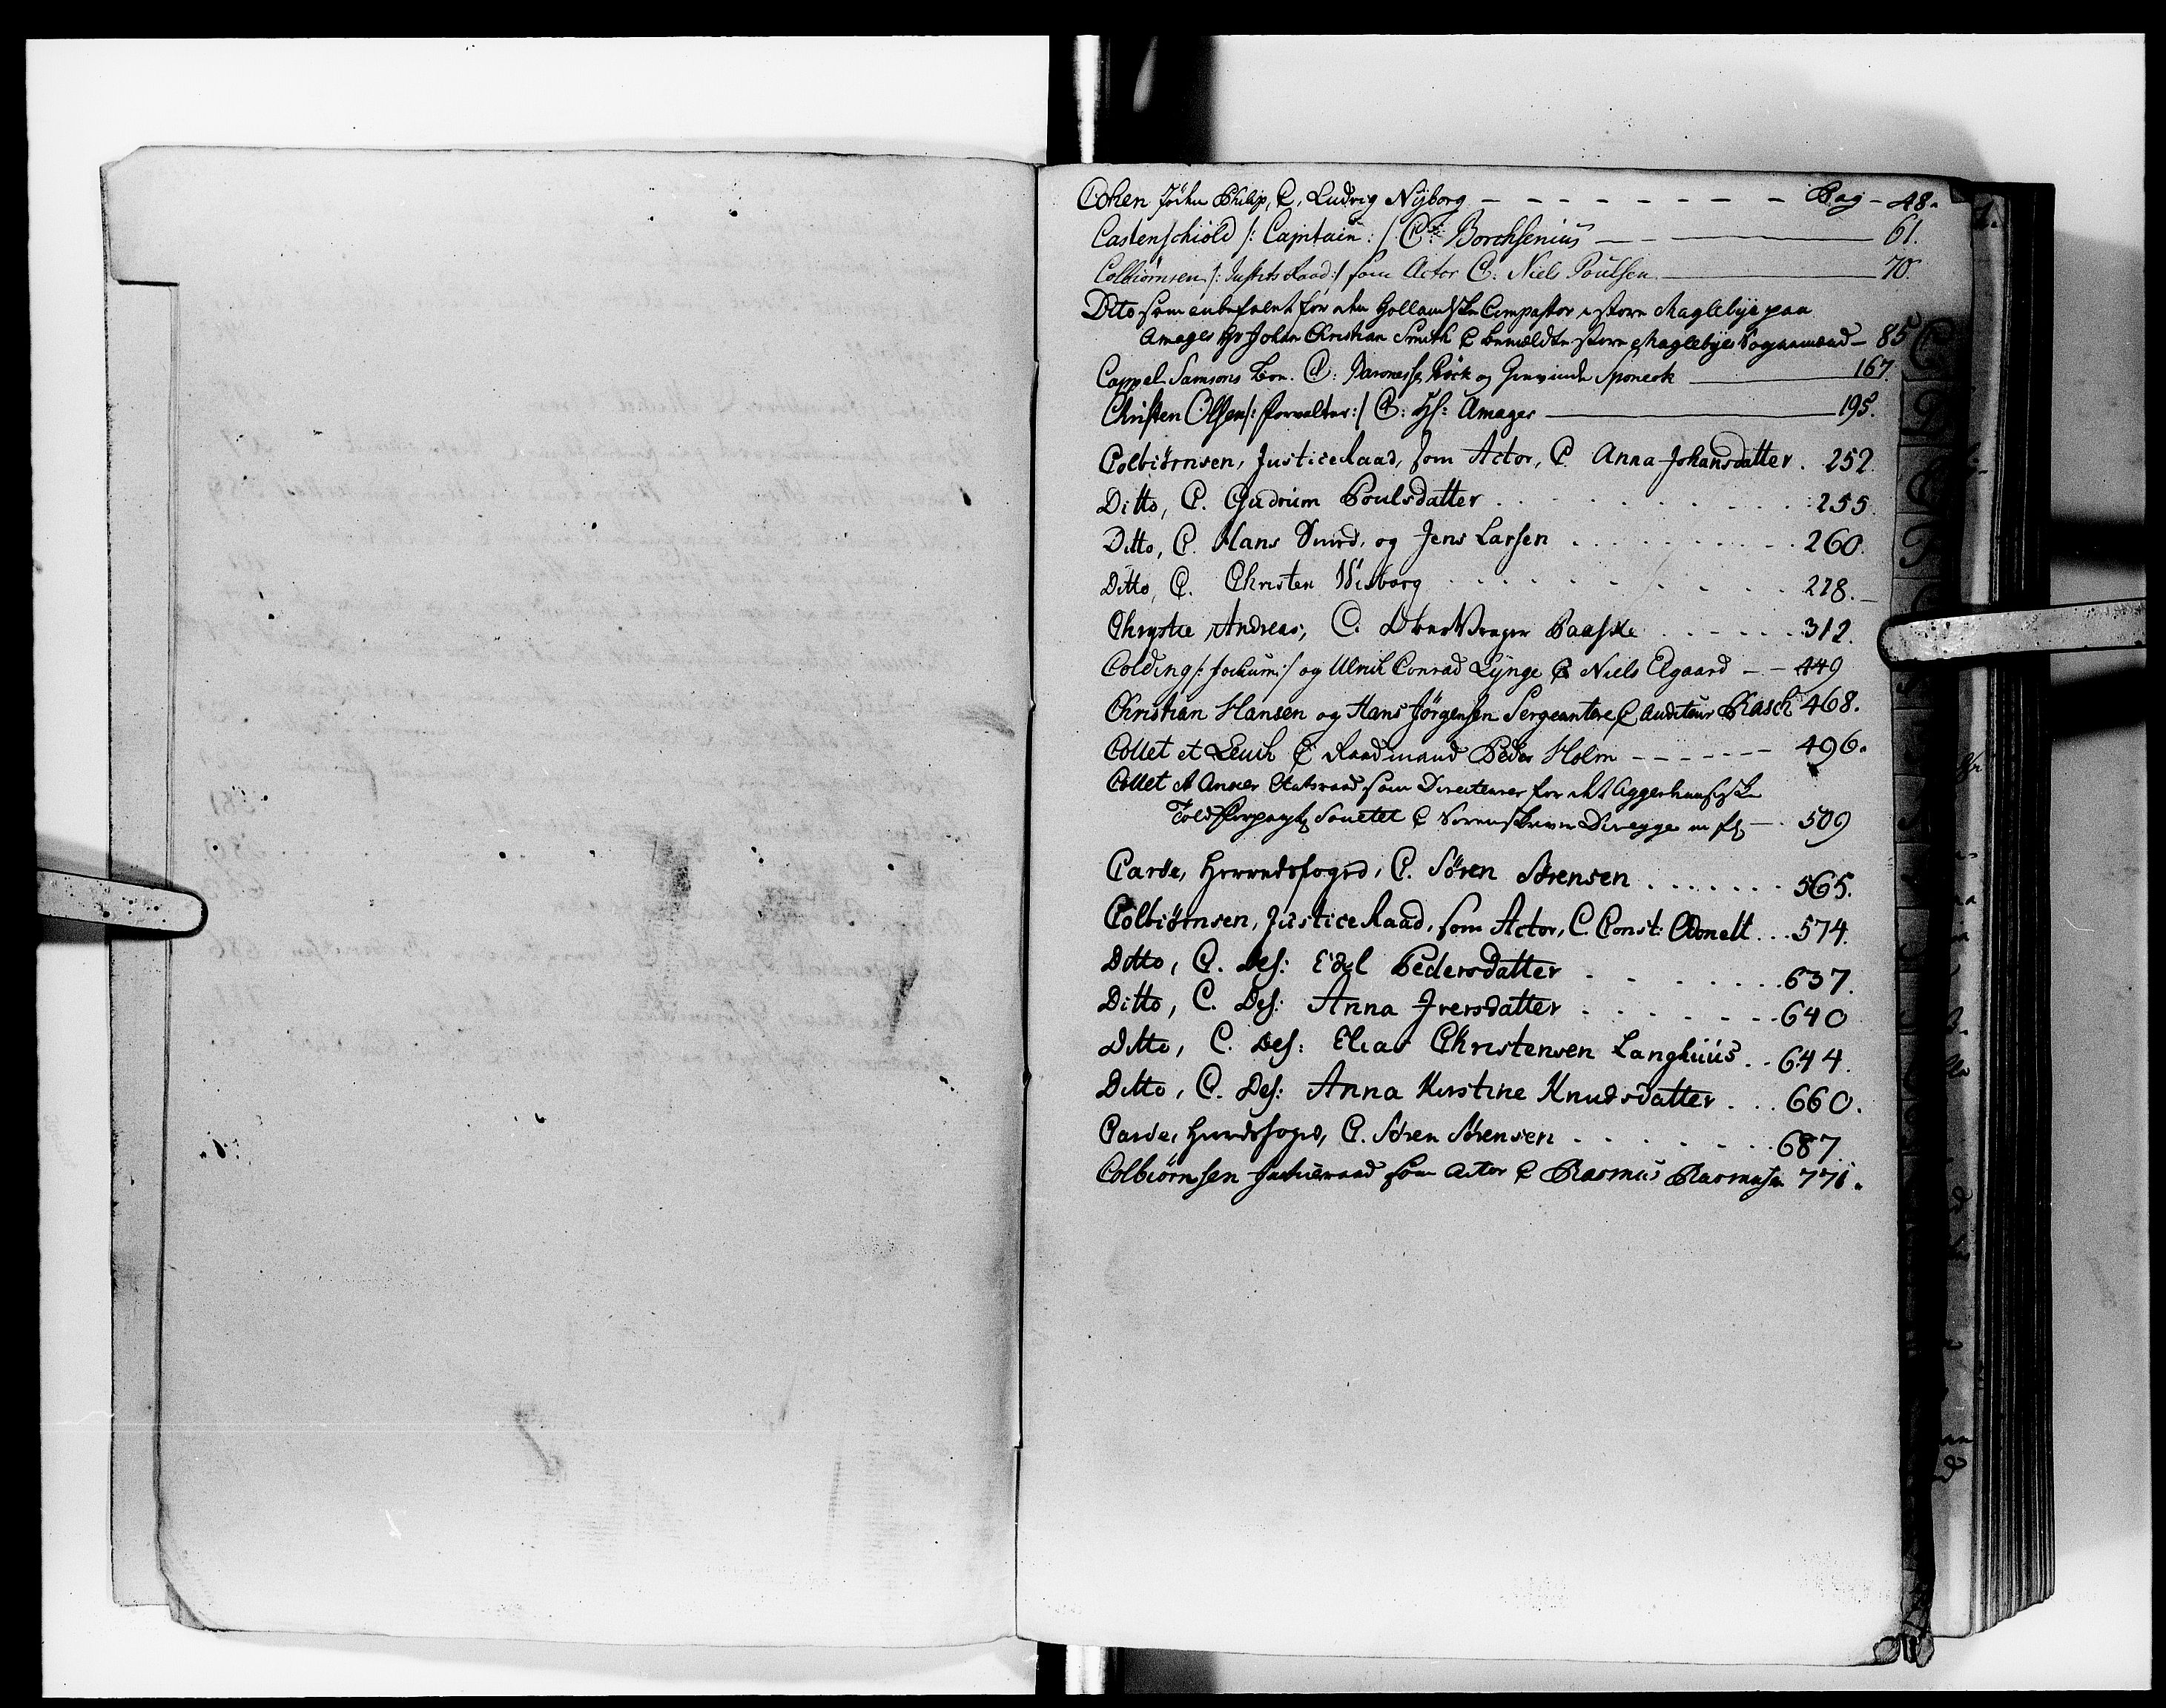 Cohen Jöchu Philip, C. Ludvig Nÿborg – – – – – – – – Pag – 48.
Castenschiold /: Capitain :/ C: Borchsenius – – – 61.
Colbiørnsen /: Justits Raad :/ som Actor C: Niels Poulsen – 70.
Dito som anbefalet for den Hollandske Compastor i store Maglebÿe paa
Amager Hr Johan Christian Smith C bemældte store Maglebÿe Sognemænd – 85
Cappel Samsons C: Baronesse og Grevinde Sponeck – 167.
Christen Olsen /: Forvalter :/ C: Hs: Amager – 195.
Colbiörnsen, Justice Raad, som Actor, C. Anna Johansdatter . 252.
Ditto, C. Gudrum Poulsdatter . . . . . 255.
Ditto, C. Hans Smid, og Jens Larsen . . . . . 260.
Ditto, C. Christen Wisborg . . . . . 278.
Chrystie, Andreas, C. Paaske . . . . . 312.
Colding /: Jochum :/ og Ulrich Conrad Lÿnge C Niels Elgaard – – 449
Christian Hansen og Hans Jörgensen Sergeantere C Auditeur Rasch 468.
Collet et Leuch C Raadmand Peder Holm – – – – – 496.
Collet et Anker Etatsraad som Directeurer for det Aggerhuusiske
Told Societet C Sorenskriver m fl – 509
Carde, Herredsfoged, C. Sören Sörensen . . . . . . . 565.
Colbiörnsen, Justice Raad, som Actor, C. Const: Odonell . . . 574.
Ditto, C. Des: Edel Pedersdatter . . . . . 637.
Ditto, C. Des: Anna Iversdatter . . . . . 640
Ditto, C. Des: Elias Christensen Langhuus . . 644.
Ditto, C. Des: Anna Kirstine Knudsdatter . . . 660.
Carde, Herredsfoged, C. Sören Sörensen . . . . . 687.
Colbiörnsen Justiceraad som Actor C Rasmus Rasmusen 771.